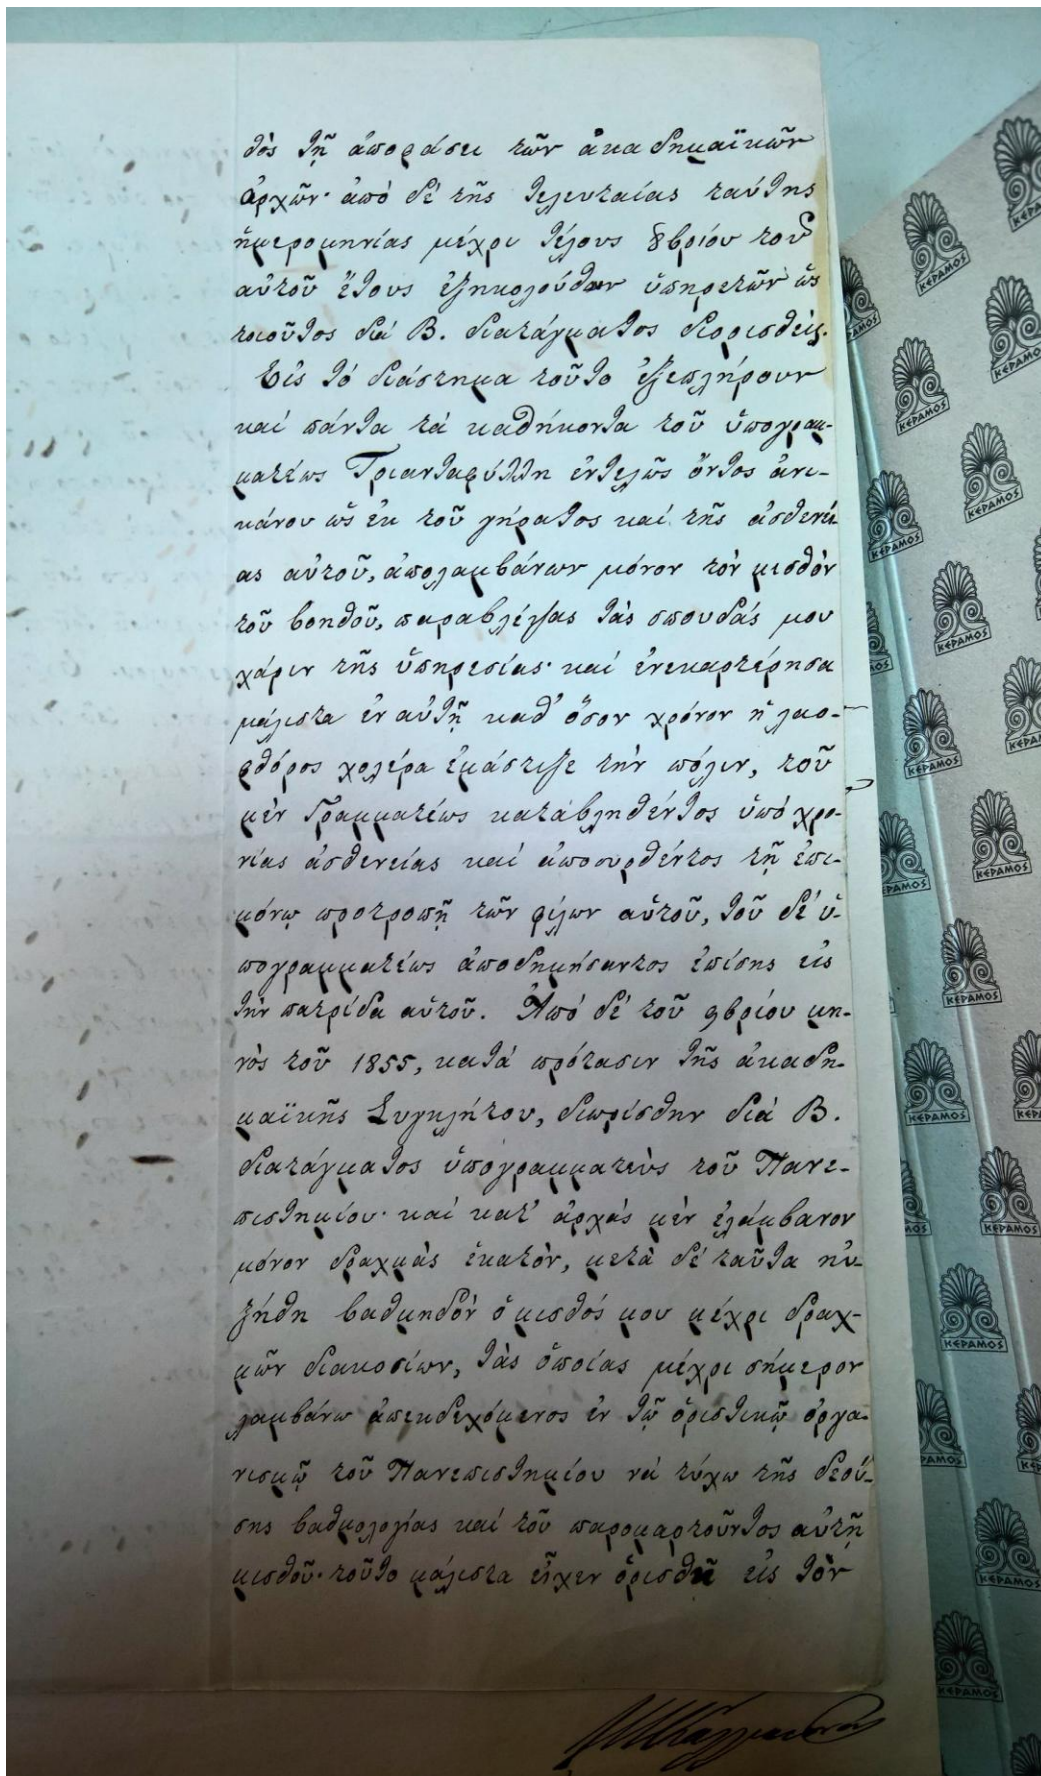 θὸς τῇ ἀποφάσει τῶν ἀκαδημαϊκῶν
ἀρχῶν· ἀπὸ δὲ τῆς τελευταίας ταύτης
ἡμερομηνίας μέχρι τέλους 8βρίου τοῦ
αὐτοῦ ἔτους ἐξηκολούθουν ὑπηρετῶν ὡς
τοιοῦτος διὰ Β. διατάγματος διορισθείς.
Εἰς τὸ διάστημα τοῦτο ἐξεπλήρουν
καὶ πάντα τὰ καθήκοντα τοῦ ὑπογραμ-
ματέως Τριανταφύλλη ἐντελῶς ὄντος ἀνι-
κάνου ὡς ἐκ τοῦ γήρατος καὶ τῆς ἀσθενεί
ας αὐτοῦ, ἀπολαμβάνων μόνον τὸν μισθὸν
τοῦ βοηθοῦ, παραβλέψας τὰς σπουδάς μου
χάριν τῆς ὑπηρεσίας· καὶ ἐνεκαρτέρησα
μάλιστα ἐν αὐτῇ καθ' ὅσον χρόνον ἡ λαο-
φθόρος χολέρα ἐμάστιζε τὴν πόλιν, τοῦ
μὲν Γραμματέως καταβληθέντος ὑπὸ χρο-
νίας ἀσθενείας καὶ ἀποσυρθέντος τῇ ἐπι-
μόνῳ προτροπῇ τῶν φίλων αὐτοῦ, τοῦ δὲ ὑ-
πογραμματέως ἀποδημήσαντος ἐπίσης εἰς
τὴν πατρίδα αὐτοῦ. Ἀπὸ δὲ τοῦ 9βρίου μη-
νὸς τοῦ 1855, κατὰ πρότασιν τῆς ἀκαδη-
μαϊκῆς Συγκλήτου, διωρίσθην διὰ Β.
διατάγματος ὑπογραμματεὺς τοῦ Πανε-
πιστημίου· καὶ κατ' ἀρχὰς μὲν ἐλάμβανον
μόνον δραχμὰς ἑκατόν, μετὰ δὲ ταῦτα ηὐ-
ξήθη βαθμηδὸν ὁ μισθός μου μέχρι δραχ-
μῶν διακοσίων, τὰς ὁποίας μέχρι σήμερον
λαμβάνω ἀπεκδεχόμενος ἐν τῷ ὁριστικῷ ὀργα-
νισμῷ τοῦ Πανεπιστημίου νὰ τύχω τῆς δεού-
σης βαθμολογίας καὶ τοῦ παρομαρτοῦντος αὐτῇ
μισθοῦ· τοῦτο μάλιστα εἶχεν ὁρισθῆ εἰς τὸν
ΚΕΡΑΜΟΣ
ΚΕΡΑΜΟΣ
ΚΕΡΑΜΟΣ
ΚΕΡΑΜΟΣ
ΚΕΡΑΜΟΣ
ΚΕΡΑΜΟΣ
ΚΕΡΑΜΟΣ
ΚΕΡΑΜΟΣ
ΚΕΡΑΜΟΣ
ΚΕΡΑΜΟΣ
ΚΕΡΑΜΟΣ
ΚΕΡΑΜΟΣ
ΚΕΡΑΜΟΣ
ΚΕΡΑΜΟΣ